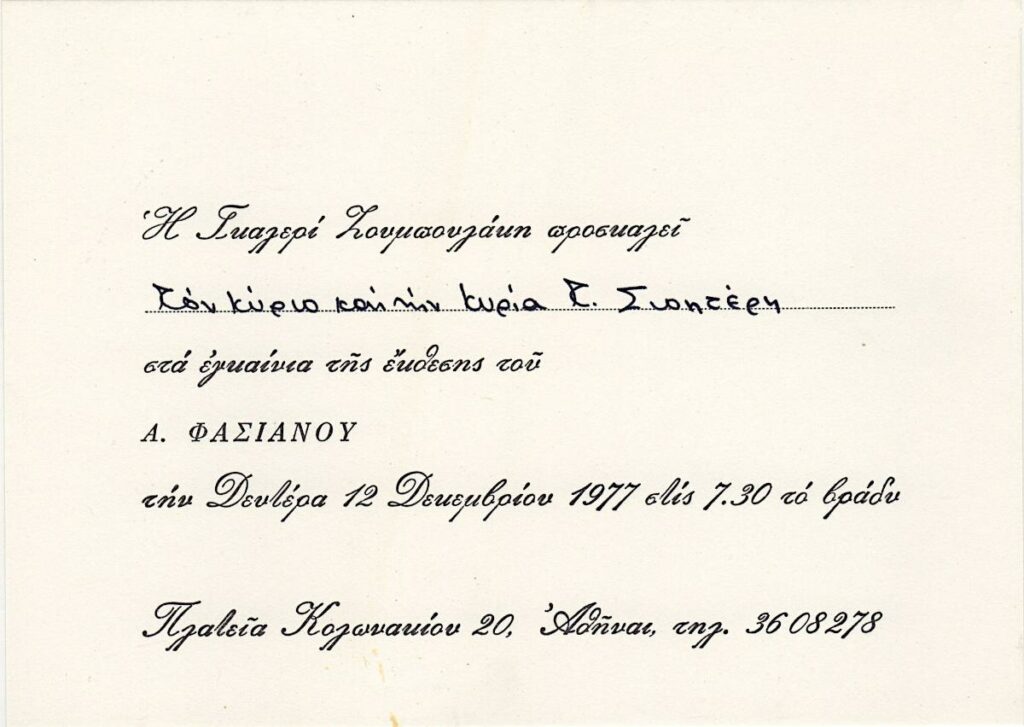 Ἡ Γκαλερί Ζουμπουλάκη προσκαλεῖ
τόν κύριο καί τήν κυρία Τ. Σπητέρη
στά ἐγκαίνια τῆς ἔκθεσης τοῦ
Α. ΦΑΣΙΑΝΟΥ
τήν Δευτέρα 12 Δεκεμβρίου 1977 στίς 7.30 τό βράδυ
Πλατεῖα Κολωνακίου 20, Ἀθῆναι, τηλ. 3608278